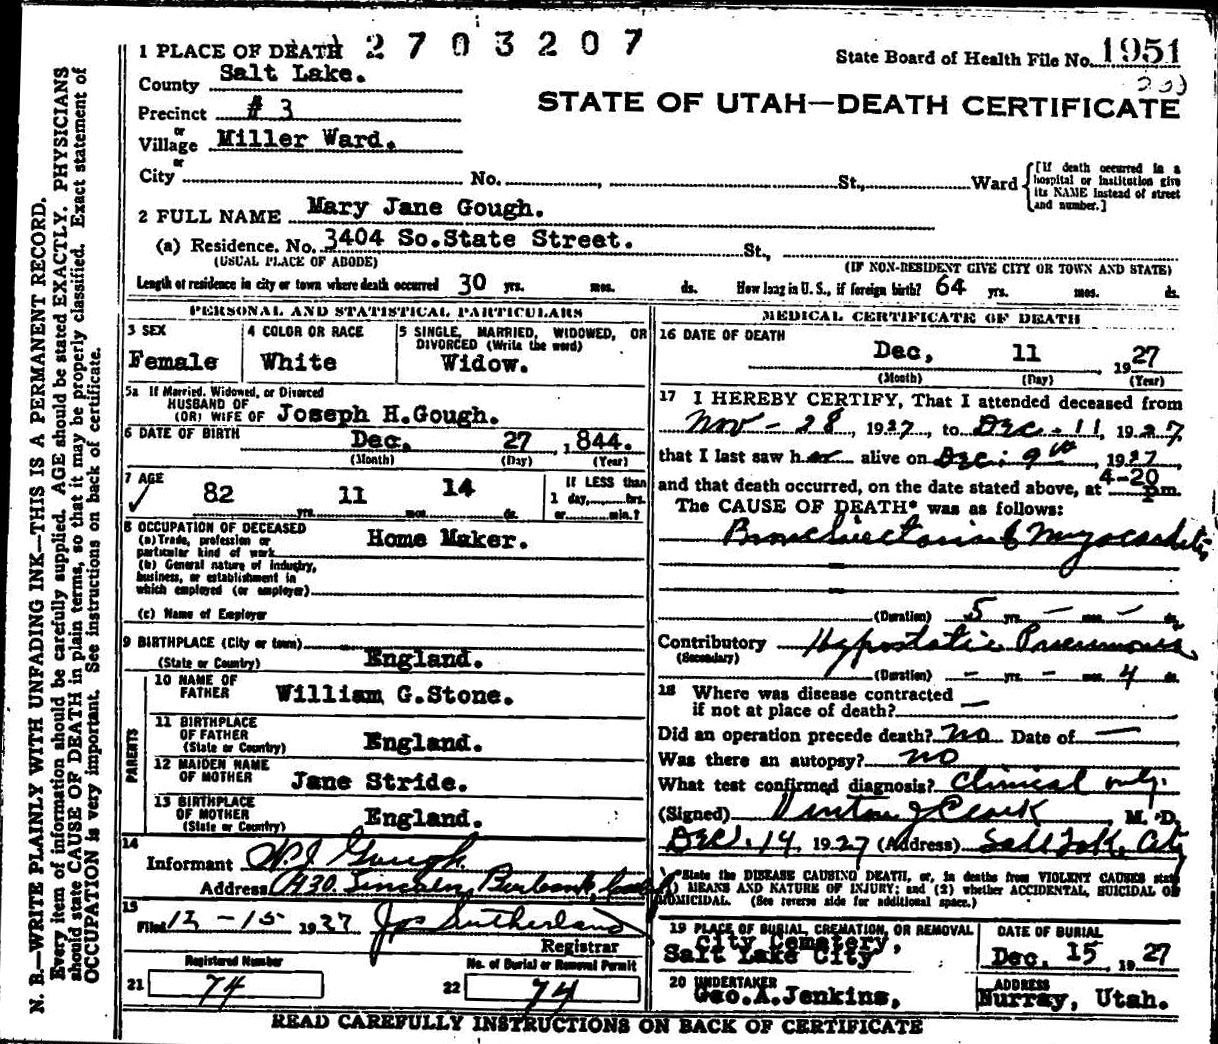 1 PLACE OF DEATH 2 7 0 3 2 0 7
State Board of Health File No. 1951
County Salt Lake.
Precinct # 3
STATE OF UTAH—DEATH CERTIFICATE
or
Village Miller Ward.
or
City No. , St., Ward
[If death occurred in a hospital or institution give its NAME instead of street and number.]
2 FULL NAME Mary Jane Gough.
(a) Residence. No. 3404 So.State Street. St.,
(USUAL PLACE OF ABODE) (IF NON-RESIDENT GIVE CITY OR TOWN AND STATE)
Length of residence in city or town where death occurred 30 yrs. mos. ds. How long in U. S., if foreign birth? 64 yrs. mos. ds.
PERSONAL AND STATISTICAL PARTICULARS
3 SEX
Female
4 COLOR OR RACE
White
5 SINGLE, MARRIED, WIDOWED, OR
DIVORCED (Write the word)
Widow.
5a If Married, Widowed, or Divorced
HUSBAND OF
(OR) WIFE OF Joseph H.Gough.
6 DATE OF BIRTH Dec. 27 , 1844.
(Month) (Day) (Year)
7 AGE
82 yrs. 11 mos. 14 ds.
If LESS than
1 day, hrs.
or min.?
8 OCCUPATION OF DECEASED
(a) Trade, profession or
particular kind of work Home Maker.
(b) General nature of industry,
business, or establishment in
which employed (or employer)
(c) Name of Employer
9 BIRTHPLACE (City or town)
(State or Country) England.
PARENTS
10 NAME OF
FATHER William G.Stone.
11 BIRTHPLACE
OF FATHER
(State or Country) England.
12 MAIDEN NAME
OF MOTHER Jane Stride.
13 BIRTHPLACE
OF MOTHER
(State or Country) England.
14
Informant W.J Gough
Address 1430 Burbank
15
Filed 12 - 15 1927 Jos Sutherland
Registrar
Registered Number
21 74
No. of Burial or Removal Permit
22 74
MEDICAL CERTIFICATE OF DEATH
16 DATE OF DEATH
Dec, 11 , 1927
(Month) (Day) (Year)
17 I HEREBY CERTIFY, That I attended deceased from
Nov - 28, 1927, to Dec - 11, 1927,
that I last saw her alive on Dec. 9th, 1927,
and that death occurred, on the date stated above, at 4-20 pm.
The CAUSE OF DEATH* was as follows:
Bronchiectasis & Myocarditis
(Duration) 5 yrs. — mos. — ds.
Contributory Hypostatic Pneumonia
(Secondary)
(Duration) — yrs. — mos. 4 ds.
18 Where was disease contracted
if not at place of death? —
Did an operation precede death? no Date of —
Was there an autopsy? no
What test confirmed diagnosis? Clinical only.
(Signed) J Clark M. D.
Dec. 14, 1927 (Address) Salt Lake City
*State the DISEASE CAUSING DEATH, or, in deaths from VIOLENT CAUSES state
(1) MEANS AND NATURE OF INJURY; and (2) whether ACCIDENTAL, SUICIDAL OR
HOMICIDAL. (See reverse side for additional space.)
19 PLACE OF BURIAL, CREMATION, OR REMOVAL
City Cemetery,
Salt Lake City
DATE OF BURIAL
Dec. 15, 1927
20 UNDERTAKER
Geo.A.Jenkins,
ADDRESS
Murray, Utah.
READ CAREFULLY INSTRUCTIONS ON BACK OF CERTIFICATE
N. B.—WRITE PLAINLY WITH UNFADING INK—THIS IS A PERMANENT RECORD.
Every item of information should be carefully supplied. AGE should be stated EXACTLY. PHYSICIANS
should state CAUSE OF DEATH in plain terms, so that it may be properly classified. Exact statement of
OCCUPATION is very important. See instructions on back of certificate.